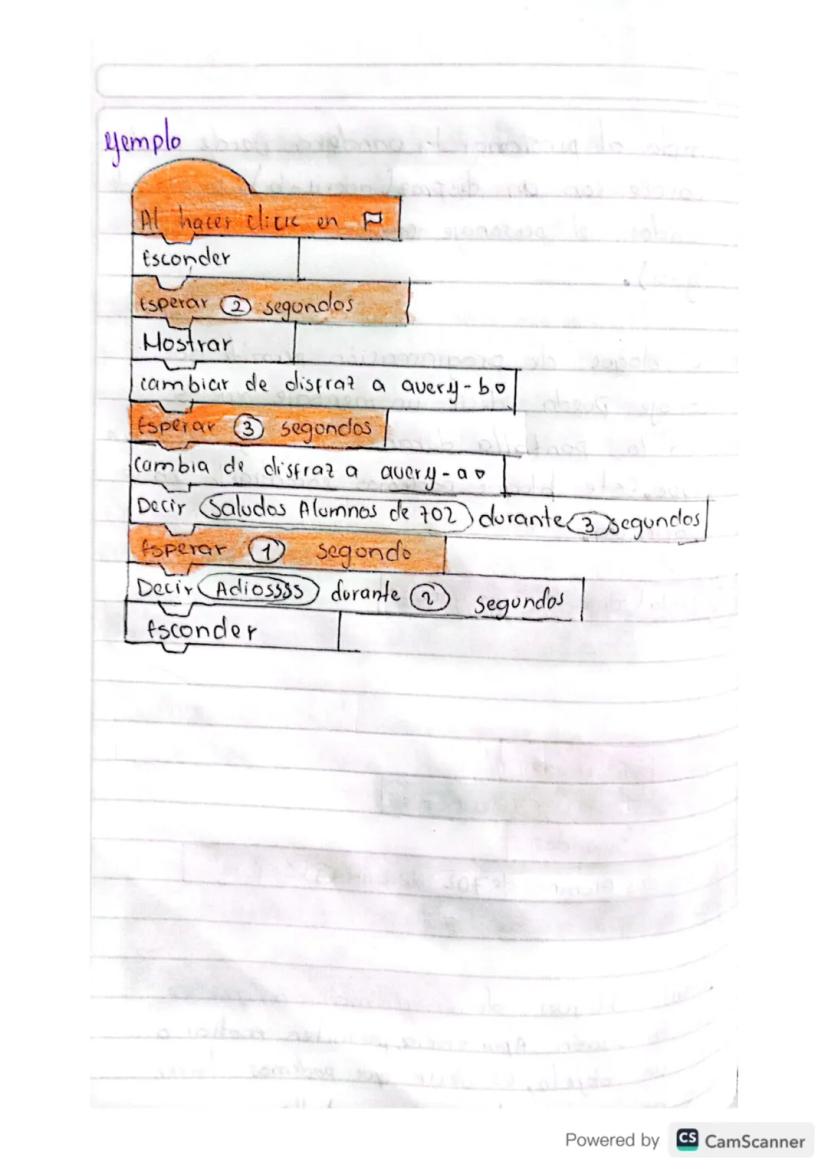 ejemplo
Al hacer click en
Esconder
Esperar 2 segundos
Mostrar
cambiar de disfraz a avery-b
Esperar 3 segundos
Cambia de disfraz a avery-a
Decir Saludos Alumnos de 702 durante 3 segundos
Esperar 1 segundo
Decir Adiossss durante 2 segundos
Esconder
Powered by CS CamScanner